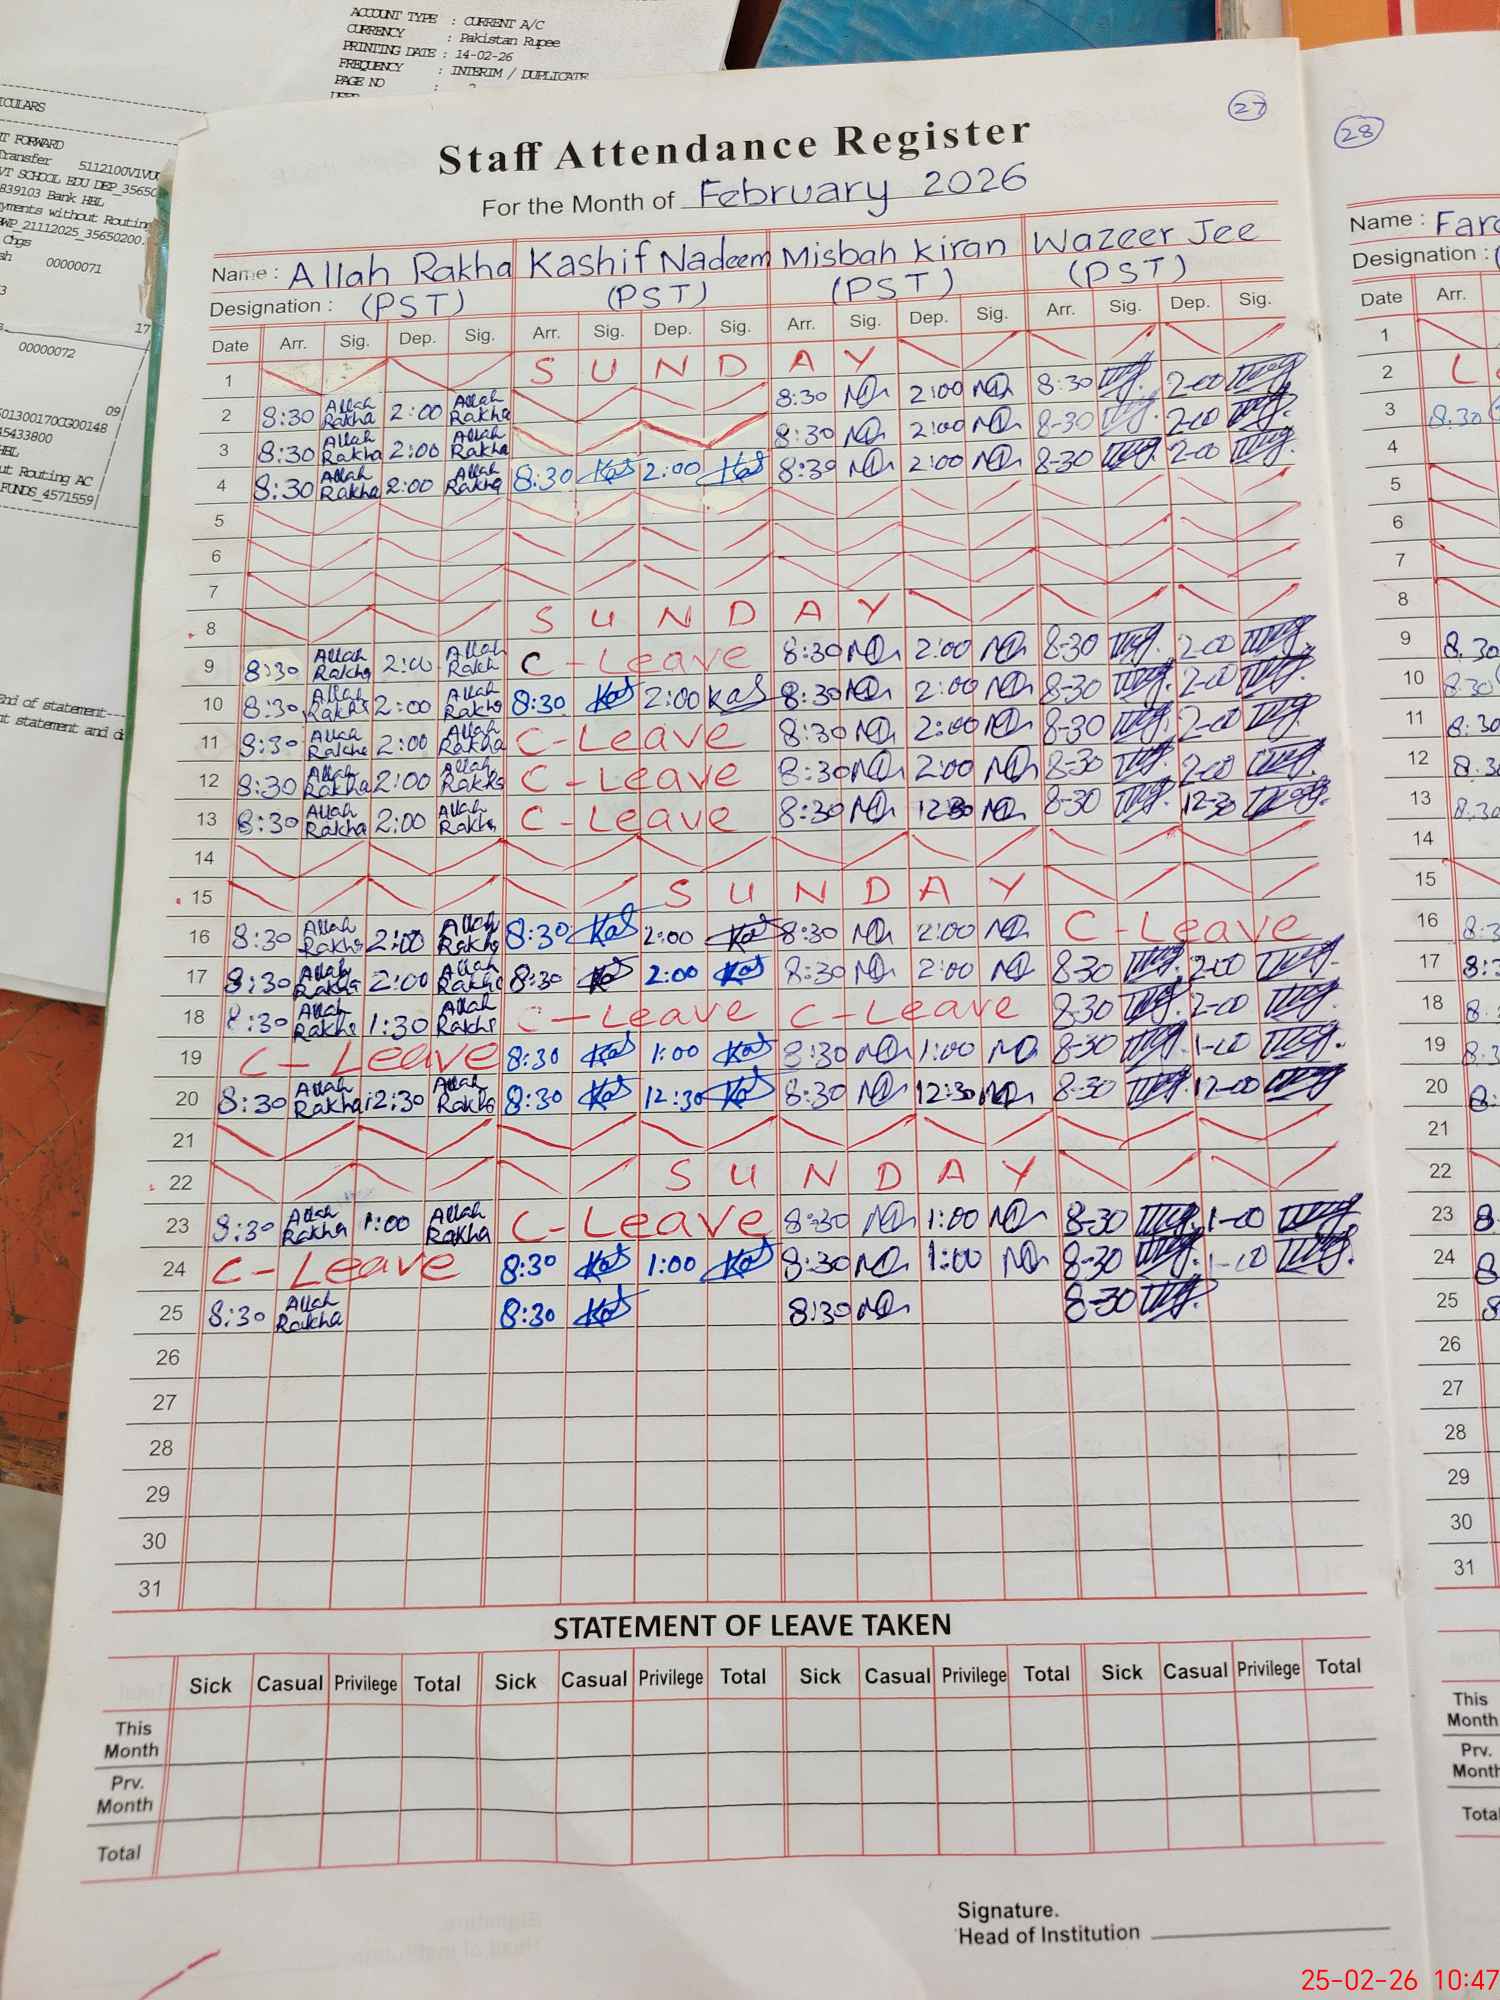 ACCOUNT TYPE : CURRENT A/C
CURRENCY : Pakistan Rupee
PRINTING DATE : 14-02-26
FREQUENCY : INTERIM / DUPLICATE
PAGE NO :
ICULARS
IT FORWARD
Transfer 5112100VIVUD
VT SCHOOL EDU DEP_35650
839103 Bank HBL
yments without Routing
BWP_21112025_35650200.
Chgs
sh 00000071
17
00000072
09
501300170CG00148
45433800
HBL
ut Routing AC
FUNDS_4571559
End of statement
nt statement and d
27
28
Staff Attendance Register
For the Month of February 2026
Name : Allah Rakha Kashif Nadeem Misbah Kiran Wazeer Jee
Designation : (PST) (PST) (PST) (PST)
Date Arr. Sig. Dep. Sig. Arr. Sig. Dep. Sig. Arr. Sig. Dep. Sig. Arr. Sig. Dep. Sig.
1 S U N D A Y
2 8:30 Allah Rakha 2:00 Allah Rakha 8:30 2:00 8-30 2-00
3 8:30 Allah Rakha 2:00 Allah Rakha 8:30 2:00 8-30 2-00
4 8:30 Allah Rakha 2:00 Allah Rakha 8:30 Kas 2:00 Kas 8:30 2:00 8-30 2-00
5
6
7
8 S U N D A Y
9 8:30 Allah Rakha 2:00 Allah Rakh C-Leave 8:30 2:00 8-30 2-00
10 8:30 Allah Rakha 2:00 Allah Rakha 8:30 Kas 2:00 Kas 8:30 2:00 8-30 2-00
11 8:30 Allah Rakha 2:00 Allah Rakha C-Leave 8:30 2:00 8-30 2-00
12 8:30 Allah Rakha 2:00 Allah Rakha C-Leave 8:30 2:00 8-30 2-00
13 8:30 Allah Rakha 2:00 Allah Rakha C-Leave 8:30 12:30 8-30 12-30
14
15 S U N D A Y
16 8:30 Allah Rakha 2:00 Allah Rakha 8:30 Kas 2:00 Kas 8:30 2:00 C-Leave
17 8:30 Allah Rakha 2:00 Allah Rakha 8:30 Kas 2:00 Kas 8:30 2:00 8-30 2-00
18 8:30 Allah Rakha 1:30 Allah Rakha C-Leave C-Leave 8-30 2-00
19 C-Leave 8:30 Kas 1:00 Kas 8:30 1:00 8-30 1-00
20 8:30 Allah Rakha 12:30 Allah Rakha 8:30 Kas 12:30 Kas 8:30 12:30 8-30 12-00
21
22 S U N D A Y
23 8:30 Allah Rakha 1:00 Allah Rakha C-Leave 8:30 1:00 8-30 1-00
24 C-Leave 8:30 Kas 1:00 Kas 8:30 1:00 8-30 1-00
25 8:30 Allah Rakha 8:30 Kas 8:30 8-30
26
27
28
29
30
31
STATEMENT OF LEAVE TAKEN
Sick Casual Privilege Total Sick Casual Privilege Total Sick Casual Privilege Total Sick Casual Privilege Total
This Month
Prv. Month
Total
Signature.
Head of Institution
Name : Far
Designation :
Date Arr.
1
2 L
3 8.30
4
5
6
7
8
9 8.30
10 8.30
11 8:30
12 8.3
13 8.30
14
15
16 8:3
17 8:
18 8:
19 8:3
20 8:
21
22
23 8
24 8
25 8
26
27
28
29
30
31
This Month
Prv. Month
Total
25-02-26 10:47